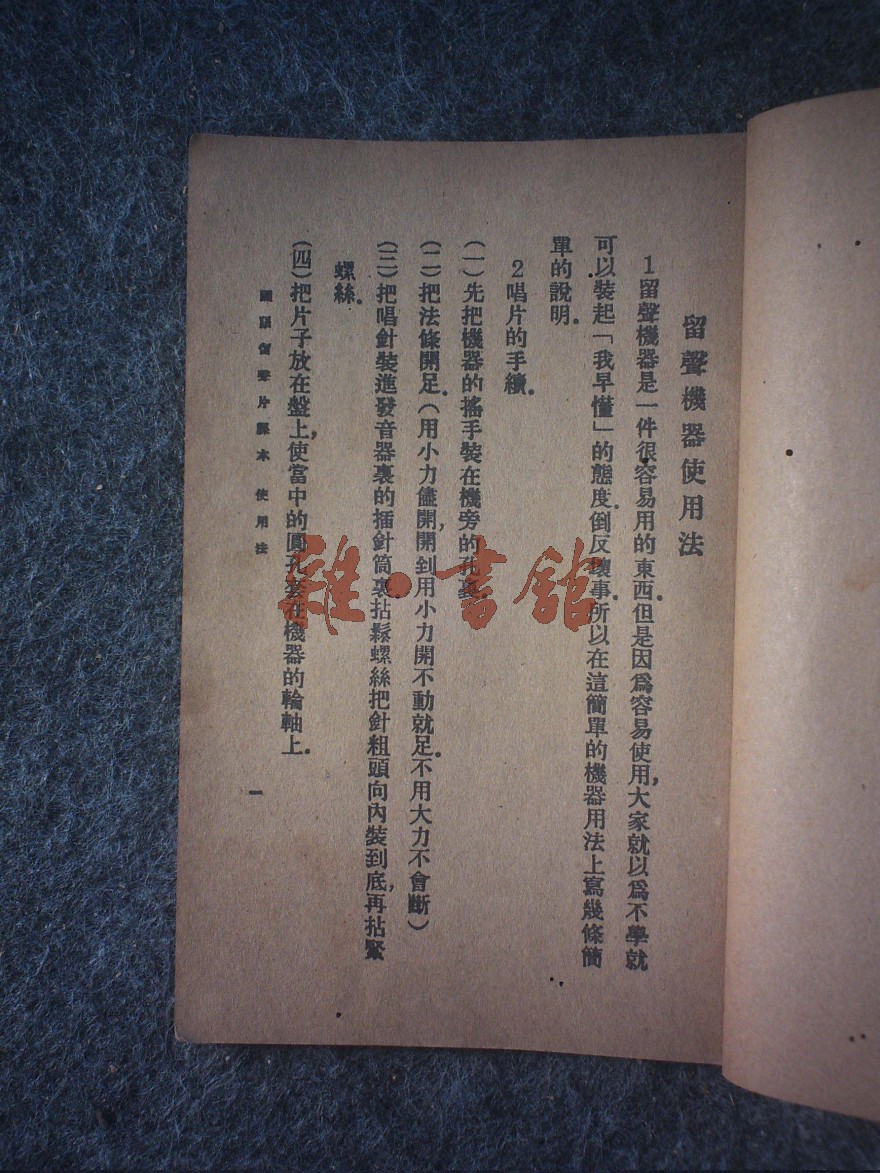 留聲機器使用法
1留聲機器是一件很容易用的東西.但是因爲容易使用,大家就以爲不學就
可以裝起「我早懂」的態度.倒反壞事.所以在這簡單的機器用法上寫幾條簡
單的說明.
2唱片的手續.
(一)先把機器的搖手裝在機旁的孔裏.
(二)把法條開足.(用小力儘開,開到用小力開不動就足.不用大力不會斷)
(三)把唱針裝進發音器裏的插針筒裏.拈鬆螺絲把針粗頭向內裝到底,再拈緊
螺絲.
(四)把片子放在盤上,使當中的圓孔套在機器的輪軸上.
國語留聲片課本 使用法
一
雜·書館